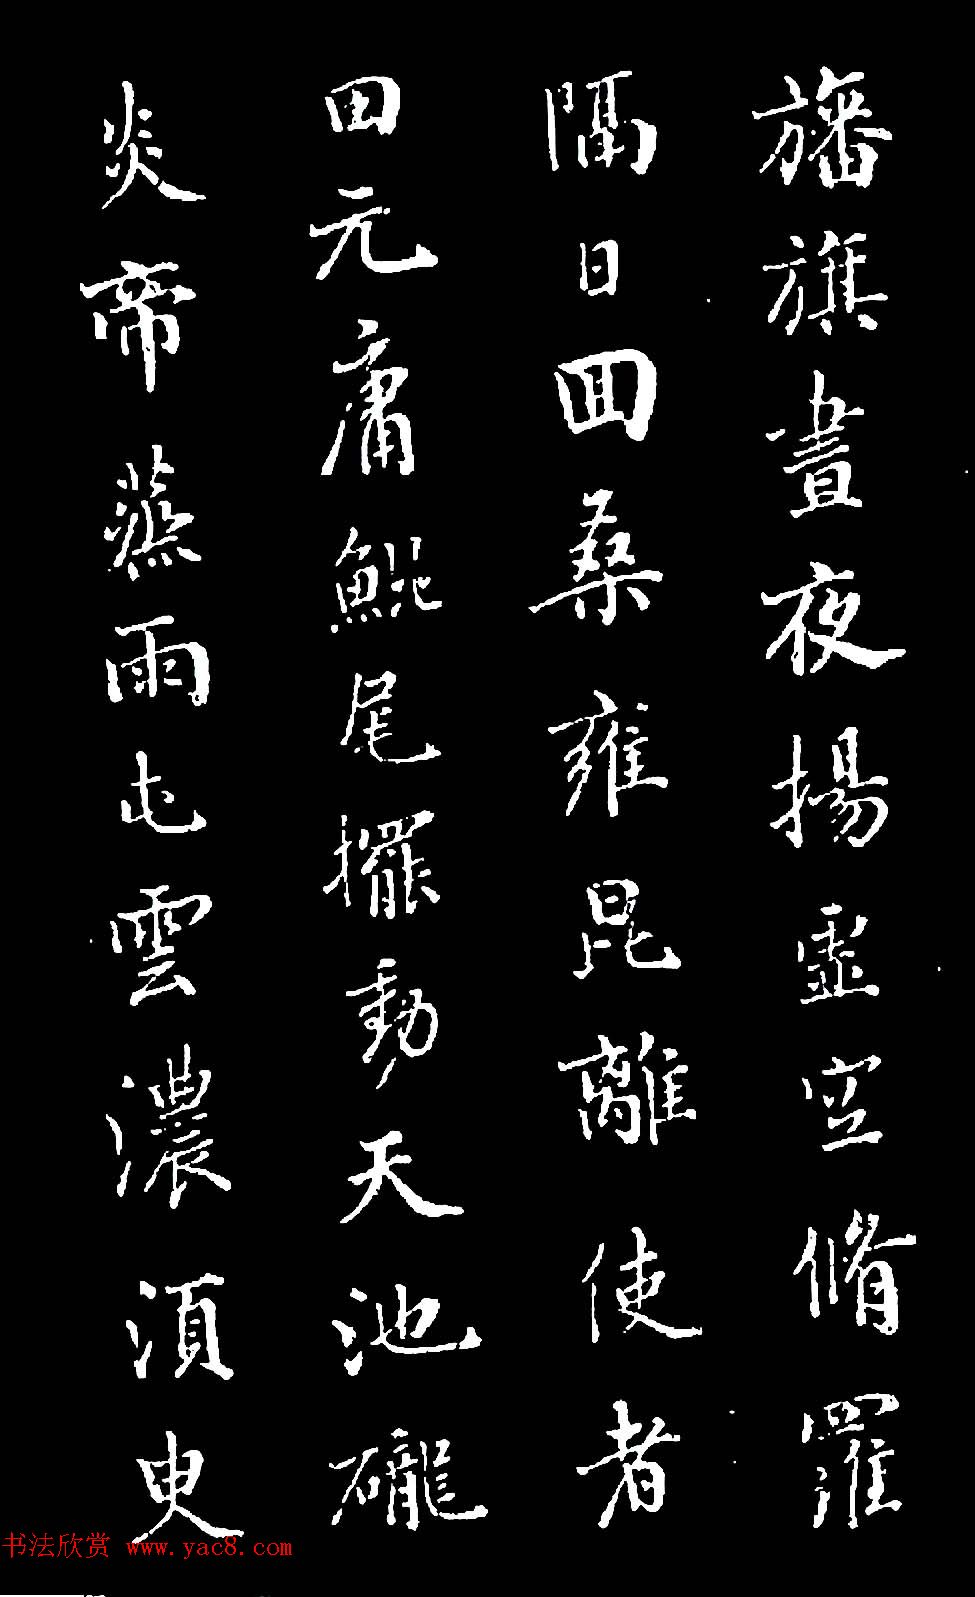 旛旗晝夜揚虛空脩羅
隔日囬桑雍昆離使者
田元庸鯤尾擺動天池礲
炎帝蒸雨屯雲濃湏臾
书法欣赏 www.yac8.com